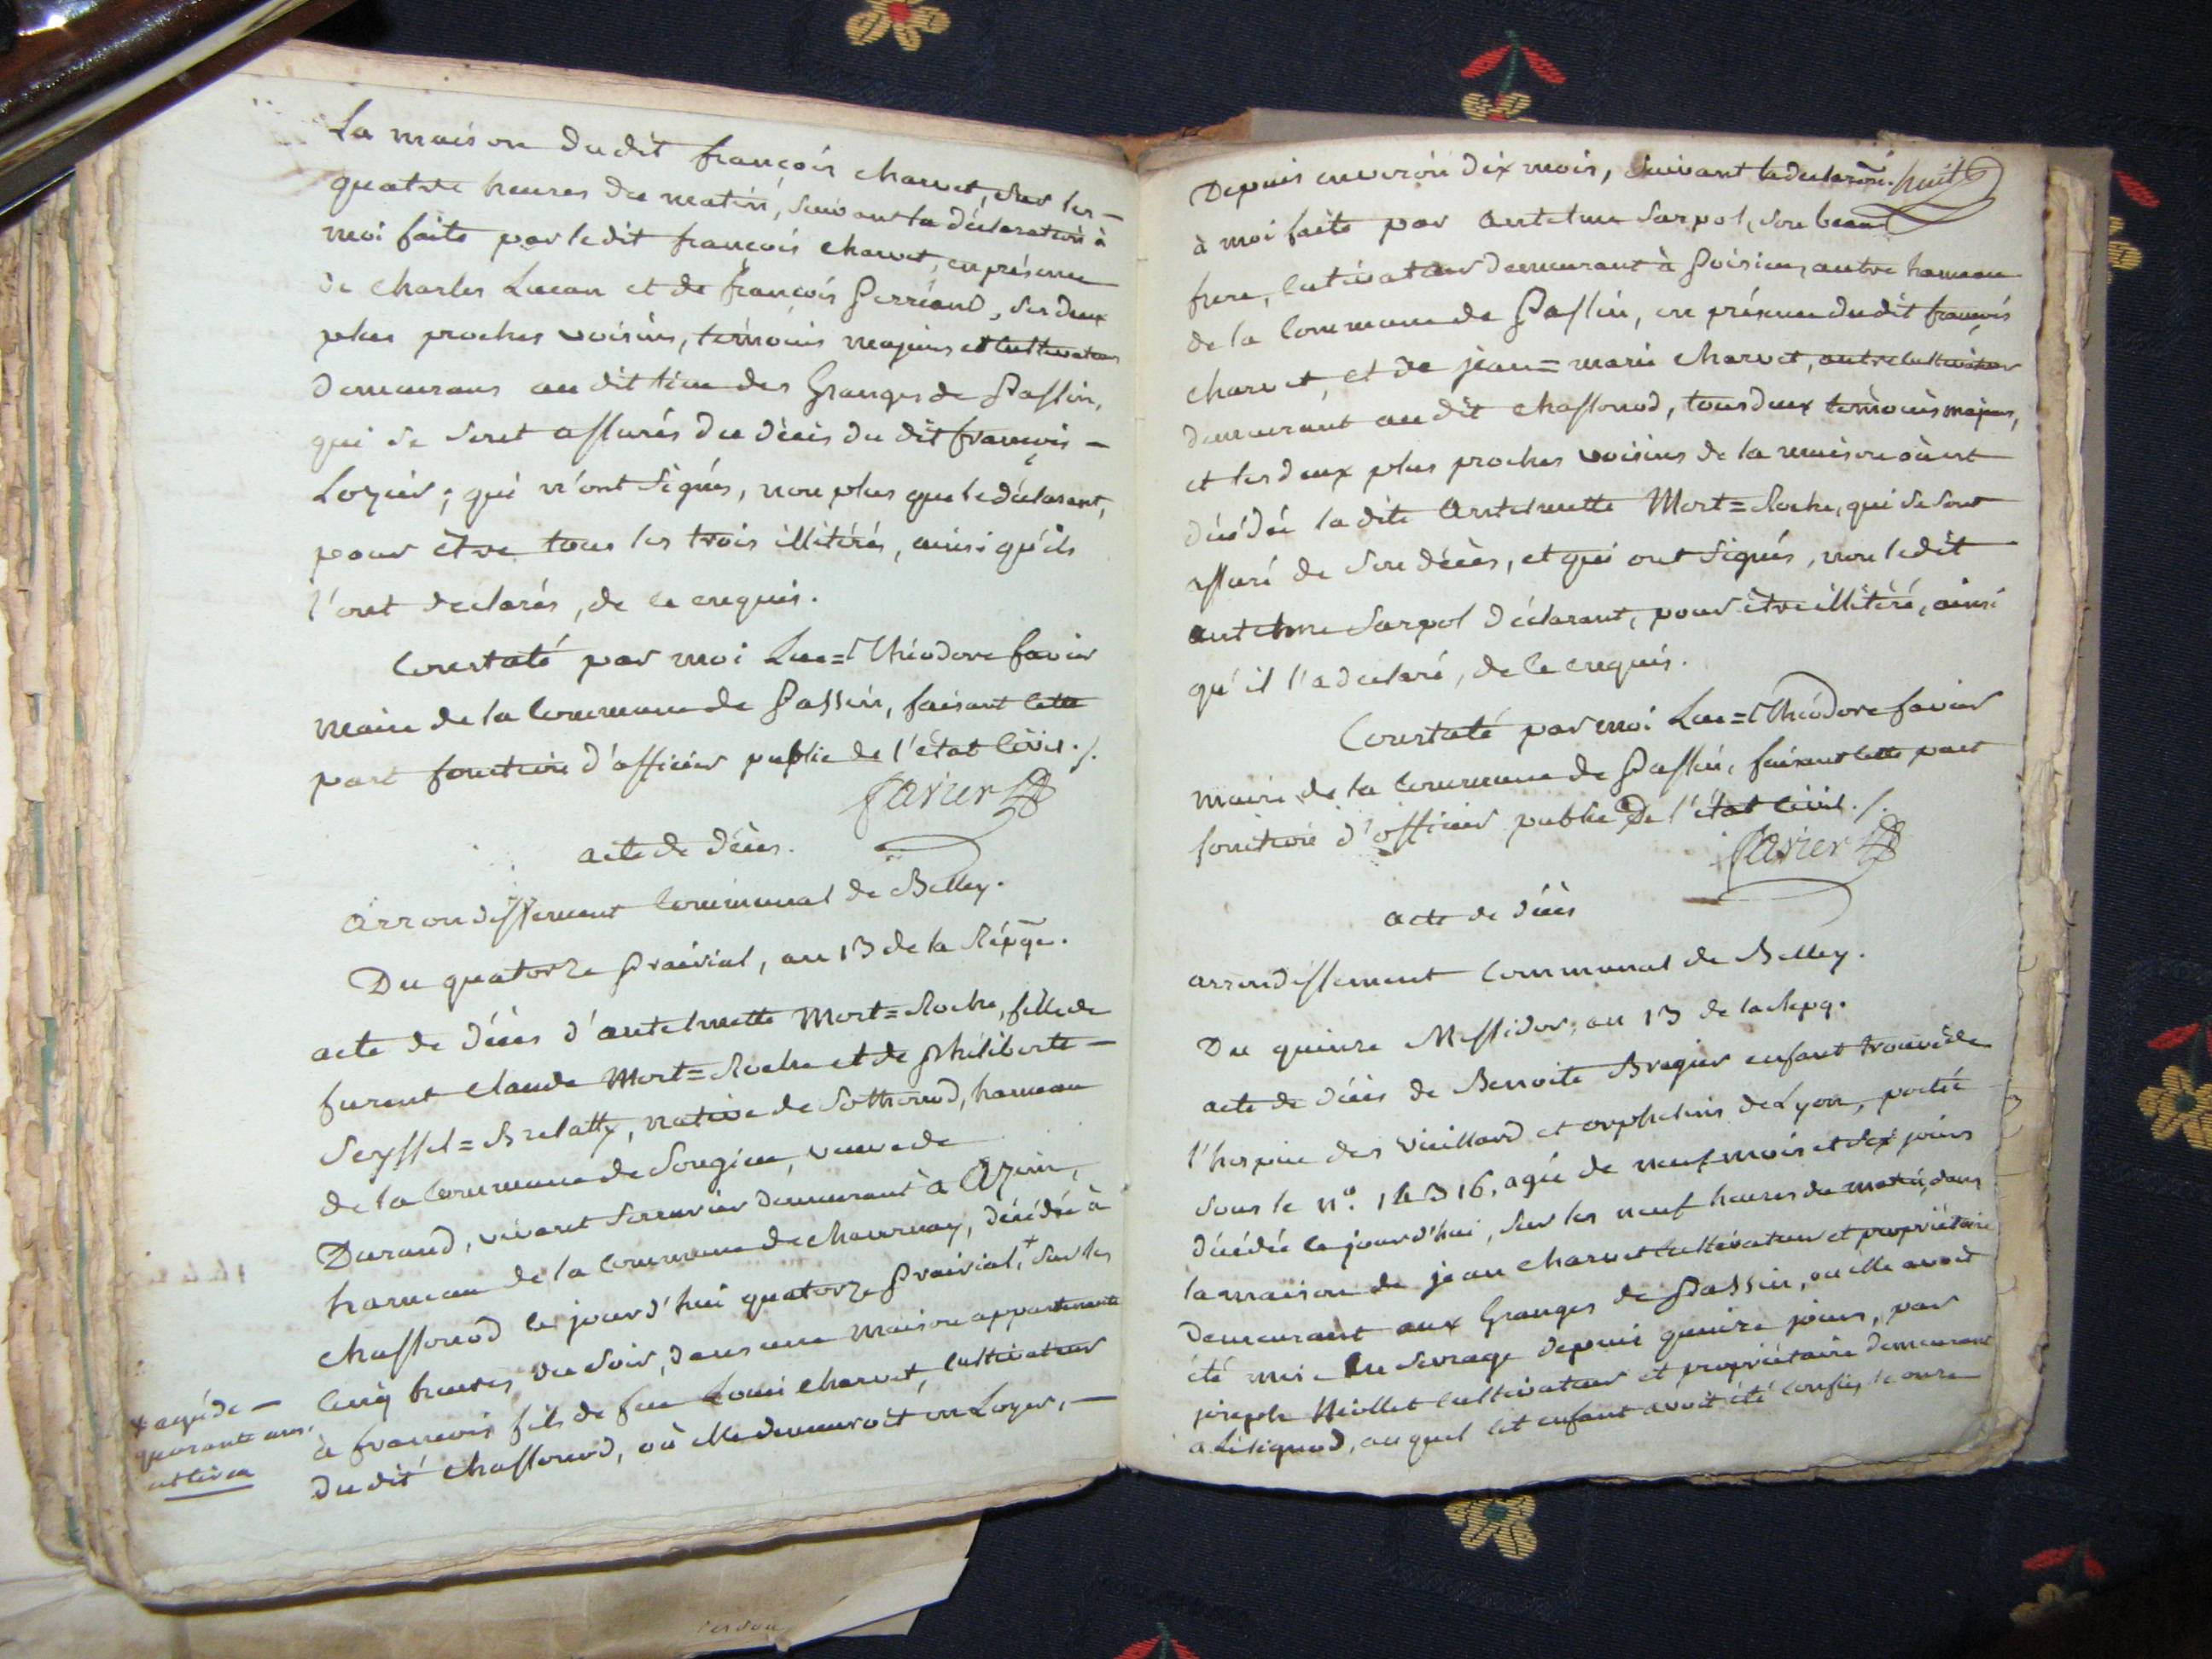 La maison dudit françois charvet, sur les —
quatre heures du matin, suivant la déclaration à
moi faite par ledit françois charvet, en présence
de charles Lucan et de françois Perréand, ses deux
plus proches voisins, témoins majeurs et cultivateurs
demeurans au dit lieu des Granges de Passin,
qui se sont assurés du décis du dit françois —
Loyier; qui n'ont signés, non plus que le déclarant,
pour être tous les trois illitérés, ainsi qu'ils
l'ont declarés, de ce enquis.
Constaté par moi Luc=Théodore favier
maire de la Commune de Passin, faisant cette
part fonction d'officier public de l'état Civil./.
favier
acte de décès.
Arrondissement Communal de Belley.
Du quatorze Prairial, an 13 de la Répqe.
acte de décès d'antelmette Mort=Roche, fille de
furent claude Mort=Roche et de Philiberte —
Seyssel=Brelatty, native de Sothonod, hameau
de la Commune de Songieu, veuve de
Durand, vivant Serrurier demeurant à Azein,
hameau de la Commune de chavornay, décédée à
chassonod ce jourd'hui quatorze Prairial, + sur les
Cinq heures du soir, dans une maison appartenante
à francois fils de feu Louis charvet, cultivateur
du dit chassonod, où elle demeuroit en Loyer, —
+ agée de —
quarante ans,
et heures
huit
Depuis environ dix mois, suivant la declaraõn
à moi faite par antelme Sarpol, son beau
frere, cultivateur demeurant à Poisieu, autre hameau
de la Commune de Passin, en présence dudit françois
charvet, et de jean=marie charvet, autre cultivateur
demeurant au dit chassonod, tous deux témoins majeurs,
et les deux plus proches voisins de la maison où est
décédée la dite Antelmette Mort=Roche, qui se sont
assuré de son décès, et qui ont signés, non ledit
antelme Sarpol déclarant, pour être illitéré, ainsi
qu'il l'a declaré, de ce enquis.
Constaté par moi Luc=Théodore favier
maire de la Commune de Passin, faisant cette part
fonction d'officier public De l'état Civil./.
favier
acte de décès
arrondissement Communal de Belley.
Du quinze Messidor, an 13 de la Repq.
acte de décès de Benoite Bregier enfant trouvée de
l'hospice des vieillard et orphelins de Lyon, portée
sous le n°. 14316, agée de neuf mois et dix jours
décédée ce jourd'hui, sur les neuf heures du matin, dans
la maison de jean charvet cultivateur et propriétaire
demeurant aux Granges de Passin, ou elle avoit
été mise En sevrage depuis quinze jours, par
joseph Miollet cultivateur et propriétaire demeurant
a Lilignod, auquel cet enfant avoit été confiés le onze